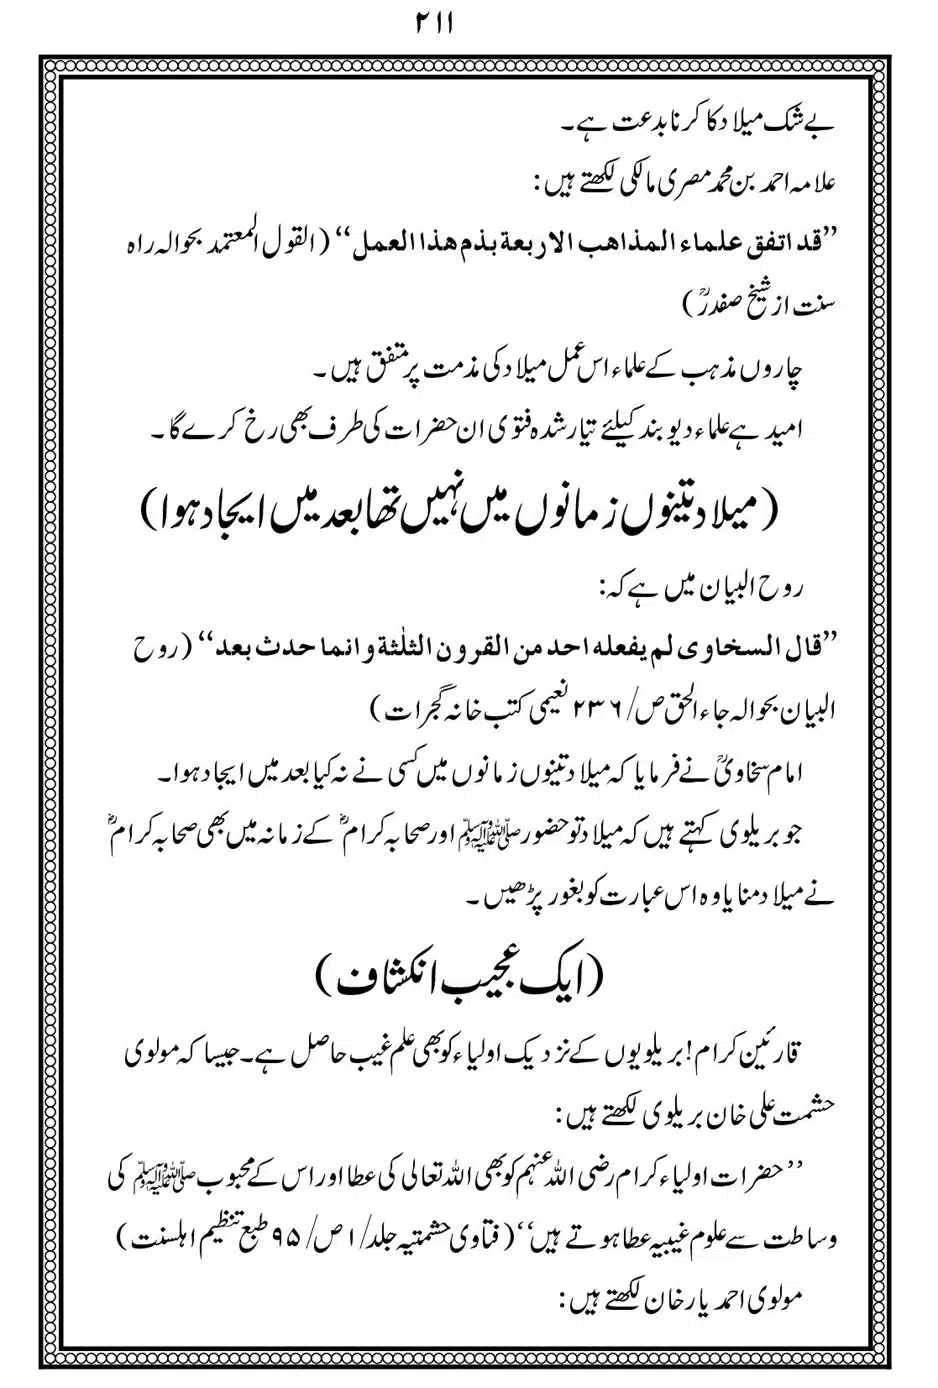 ۲۱۱
بے شک میلاد کا کرنا بدعت ہے۔
علامہ احمد بن محمد مصری مالکی لکھتے ہیں:
”قد اتفق علماء المذاهب الاربعة بذم هذا العمل“ (القول المعتمد بحوالہ راہ
سنت از شیخ صفدرؒ)
چاروں مذہب کے علماء اس عمل میلاد کی مذمت پر متفق ہیں۔
امید ہے علماء دیوبند کیلئے تیار شدہ فتوی ان حضرات کی طرف بھی رخ کرے گا۔
(میلاد تینوں زمانوں میں نہیں تھا بعد میں ایجاد ہوا)
روح البیان میں ہے کہ:
”قال السخاوی لم یفعله احد من القرون الثلٰثة وانما حدث بعد“ (روح
البیان بحوالہ جاء الحق ص/۲۳۶ نعیمی کتب خانہ گجرات)
امام سخاویؒ نے فرمایا کہ میلاد تینوں زمانوں میں کسی نے نہ کیا بعد میں ایجاد ہوا۔
جو بریلوی کہتے ہیں کہ میلاد تو حضور ﷺ اور صحابہ کرامؓ کے زمانہ میں بھی صحابہ کرامؓ
نے میلاد منایا وہ اس عبارت کو بغور پڑھیں۔
(ایک عجیب انکشاف)
قارئین کرام! بریلویوں کے نزدیک اولیاء کو بھی علم غیب حاصل ہے۔ جیسا کہ مولوی
حشمت علی خان بریلوی لکھتے ہیں:
’’حضرات اولیاء کرام رضی اللہ عنہم کو بھی اللہ تعالی کی عطا اور اس کے محبوب ﷺ کی
وساطت سے علوم غیبیہ عطا ہوتے ہیں‘‘ (فتاوی حشمتیہ جلد/۱ ص/۹۵ طبع تنظیم اہلسنت)
مولوی احمد یار خان لکھتے ہیں: